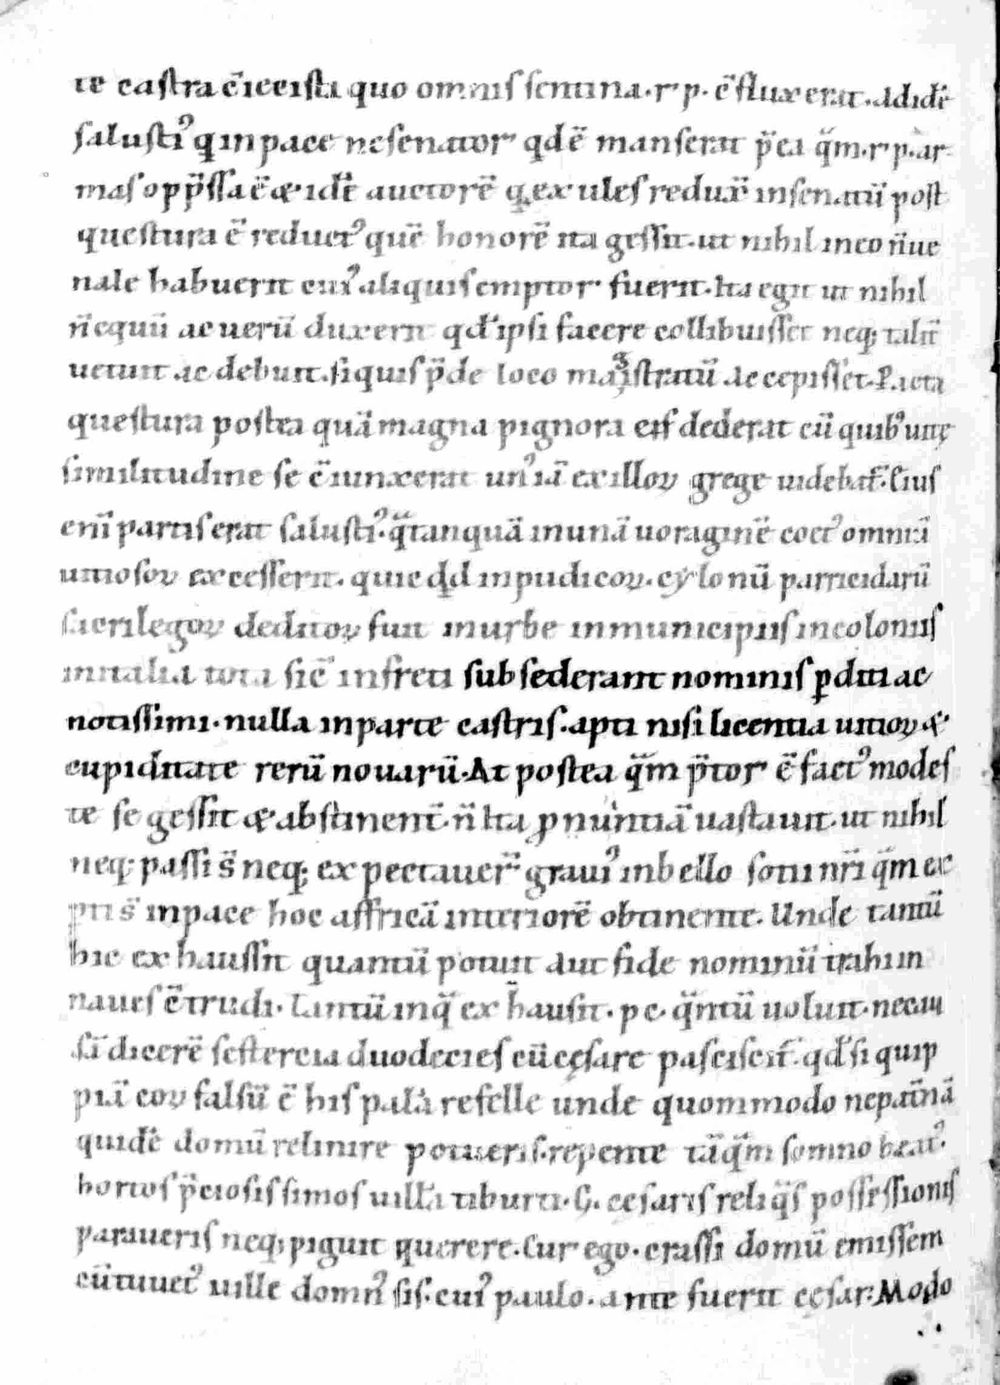 te castra c̃iecisti quo omnis sentina · r p · c̃fluxerat · Adidẽ
salustiꝰ q in pace ne senatorˢ qdẽ manserat p̃ea q̃m · r p · ar
mas opp̃ssa ẽ & idẽ auctorẽ q exules redux̃ in senatũ post
questurã ẽ reductꝰ quẽ honorẽ ita gessit · ut nihil in eo ñ ue
nale habuerit cuiꝰ aliquis emptor fuerit · Ita egit ut nihil
ñ equũ ac uerũ duxerit qd̃ ipsi facere collibuisset neq; talit̃
uetuit ac debuit · si quis p̃de loco magistratũ accepisset · Pacta
questura postea quã magna pignora eis dederat cũ quibꝰ una
similitudine se c̃iunxerat unꝰ iã ex illoꝝ grege uidebat̃ · Eius
eni partis erat salustiꝰ · q̃ tanquã in unã uoraginẽ coetꝰ omniũ
uitiosoꝝ excesserit · quicqd inpudicoꝝ · cylonũ parricidarũ
sacrilegoꝝ debitoꝝ fuit in urbe in municipiis in coloniis
in italia tota sic̃ in freti subsederant nominis ꝑditi ac
notissimi · nulla in parte castris · apti nisi licentia uitioꝝ &
cupiditate rerũ nouarũ · At postea q̃m p̃tor ẽ factꝰ modes
te se gessit & abstinent̃ · ñ ita ꝓnuntiã uastauit · ut nihil
neq; passi s̃ neq; expectauer̃ grauiꝰ in bello sotii nr̃i q̃m ex
pti s̃ in pace hoc affricã interiorẽ obtinente · Unde tantũ
hic exhaussit quantũ potuit aut fide nominũ trahi in
naues c̃trudi · Tantũ inq̃ exhausit · p c · q̃ntũ uoluit · ne cau
sã dicerẽ sestercia duodecies cũ cęsare pascisit̃ · qd̃ si quip
piã eoꝝ falsũ ẽ his palã refelle unde quommodo ne pat̃nã
quidẽ domũ relinire potueris · repente tãq̃m somno beatꝰ ·
hortos p̃ciosissimos uillã tiburti · G · cesaris reliq̃s possessionis
paraueris neq; piguit querere · Cur ego · crassi domũ emissem
cũ tu uetꝰ uille domnꝰ sis · cuiꝰ paulo · ante fuerit cęsar : Modo